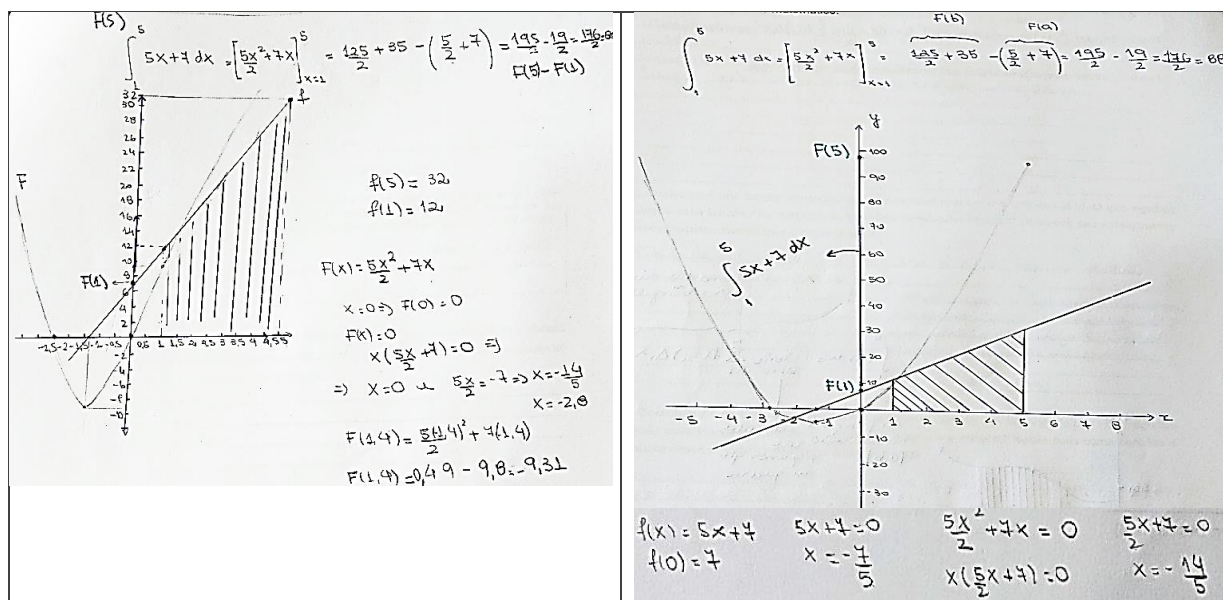 F(5)
∫₁⁵ 5x+7 dx = [5x²/2 + 7x]⁵ₓ₌₁ = 125/2 + 35 − (5/2 + 7) = 195/2 − 19/2 = 176/2 = 88
F(5) − F(1)
32
30
28
26
24
22
20
18
16
14
12
10
8
6
4
2
f
F
F(1)
-2,5 -2 -1,5 -1 -0,5 0,5 1 1,5 2 2,5 3 3,5 4 4,5 5
-2
-4
-6
-8
f(5) = 32
f(1) = 12
F(x) = 5x²/2 + 7x
x=0 => F(0) = 0
F(x) = 0
x(5x/2 + 7) = 0 =>
=> x=0 5x/2 = -7 => x = -14/5
x = -2,8
F(1,4) = 5(1,4)²/2 + 7(1,4)
F(1,4) = 0,49 − 9,8 = -9,31
F(b) F(a)
∫₁⁵ 5x+7 dx = [5x²/2 + 7x]⁵ₓ₌₁ = 125/2 + 35 − (5/2 + 7) = 195/2 − 19/2 = 176/2 = 88
y
F(5)
100
90
80
70
60
50
40
30
20
10
∫₁⁵ 5x+7 dx
F(1)
-5 -4 -3 -2 -1 1 2 3 4 5 6 7 8 x
-10
-20
-30
f(x) = 5x+7 5x+7=0 5x²/2 + 7x = 0 5x/2 + 7 = 0
f(0) = 7 x = -7/5 x(5/2 x + 7) = 0 x = -14/5